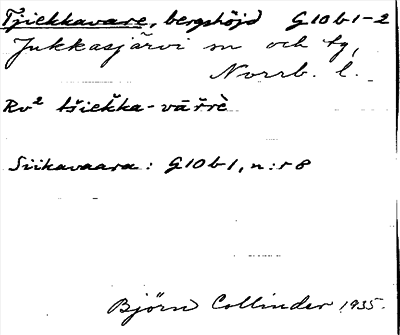 Tjiekkavare, bergshöjd G10b1-2
Jukkasjärvi sn och tg,
Norrb. l.
Rv² tšiekka-vārrè
Siikavaara: G10b1, n:r 8
Björn Collinder 1935.